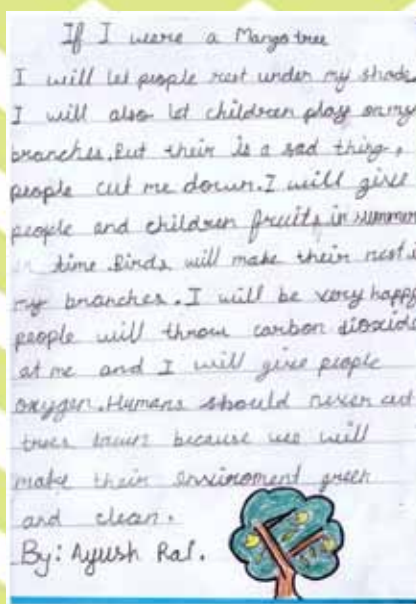 If I were a Mango tree
I will let people rest under my shade
I will also let children play on my
branches. But their is a sad thing,
people cut me down. I will give
people and children fruits in summer
time. Birds will make their nest
my branches. I will be very happy
people will throw carbon dioxide
at me and I will give people
oxygen. Humans should never cut
trees down because we will
make their enviroment green
and clean.
By: Ayush Rai.